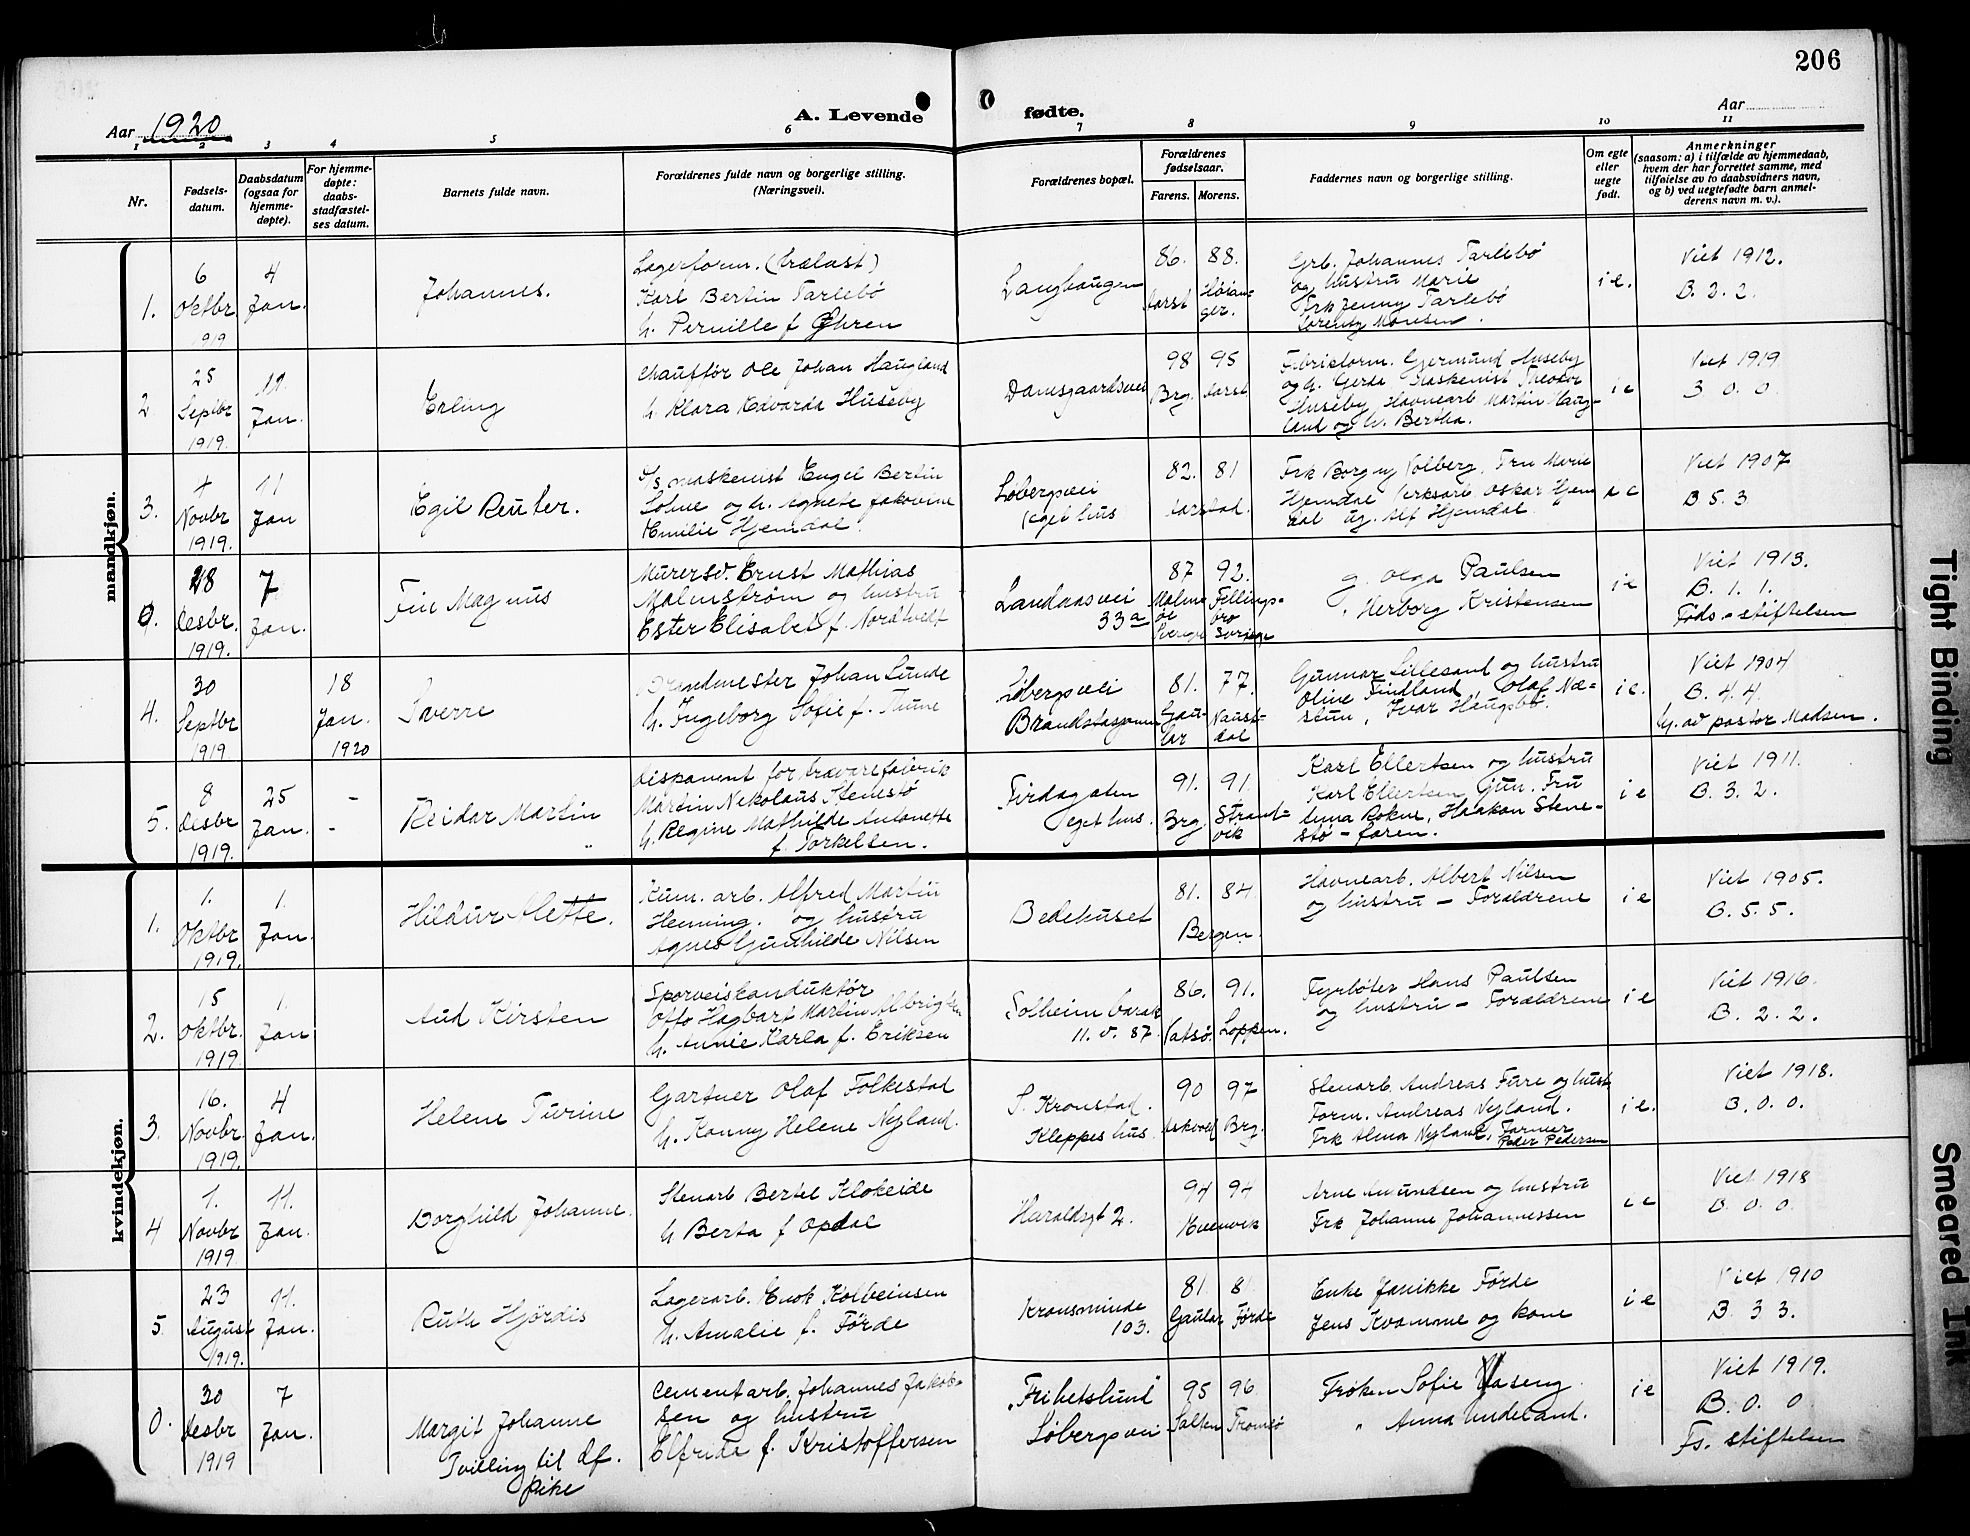 206
Aar 1920
A. Levende fødte.
Aar
1 2 3 4 5 6 7 8 9 10 11
Nr.
Fødsels-
datum.
Daabsdatum
(ogsaa for
hjemme-
døpte).
For hjemme-
døpte:
daabs-
stadfæstel-
ses datum.
Barnets fulde navn.
Forældrenes fulde navn og borgerlige stilling.
(Næringsvei).
Forældrenes bopæl.
Forældrenes
fødselsaar.
Farens. Morens.
Faddernes navn og borgerlige stilling.
Om egte
eller
uegte
født.
Anmerkninger
(saasom: a) i tilfælde av hjemmedaab,
hvem der har forrettet samme, med
tilføielse av to daabsvidners navn,
og b) ved uegtefødte barn anmel-
derens navn m. v.).
mandkjøn.
1.
6
Oktbr
1919
4
Jan.
Johannes.
Lagerform. (trælast)
Karl Bertin Tarlebø
h. Pernille f. Øhren
Langhaugen
86. 88.
Aarst Høian-
ger.
Grb. Johannes Tarlebø
og hustru Marie
Frk Jenny Tarlebø
Lorentz Monsen.
i e.
Viet 1912.
B. 2. 2.
2.
25
Septbr
1919.
11.
Jan.
Erling
Chauffør Ole Johan Haugland
h. Klara Edvarda Huseby
Damsgaardsvei
98 95
Brg. Aarst
Fabrikform. Gjermund Huseby
og h. Gerda Maskenist Theodor
Huseby, Havnearb Martin Haug-
land og h. Bertha.
i e
Viet 1919
B 0. 0.
3.
4
Novbr
1919.
11
Jan
Egil Reuter.
D/s maskenist Engel Bertin
og h. Agnete Jakovine
Emilie Hjemdal.
Løbergsvei
eget hus
82. 81
Aarstad.
Frk Borgny Solberg, Fru Marie
Hjemdal Oskar Hjem
dal ug. Alf Hjemdal
Viet 1907
B 5. 3
0.
28
Desbr.
1919.
7
Jan.
Fin Magnus
Murersv. Ernst Mathias
Malmstrøm og hustru
Ester Elisabet f. Nordtvedt
Landaasvei
33a
87 92.
Malmø Fellings-
bro
Sverige
g. Olga Paulsen
" Herborg Kristensen
i e
Viet 1913.
B. 1. 1.
Føds.-stiftelsen
4.
30
Septbr
1919.
18
Jan.
1920
Sverre
Brandmester Johan Lunde
h. Ingeborg Sofie f. Thune
Løbergsvei
Brandstasjonen
81. 77.
Gau- Naust-
lar dal
Gunnar Lillesand og hustru
Oline Findland, Olaf Næ-
stun, Ivar Haugsbø.
i e.
Viet 1904
B. 4. 4.
h. av pastor Madsen.
5.
8
Desbr
1919.
25
Jan.
-
-
Reidar Martin
Disponent for trævarefabrik
Martin Nikolaus Stenestø
h. Regine Mathilde Antonette
f. Torkelsen.
Firdagaten
eget hus.
91. 91.
Brg. Strand-
vik
Karl Ellertsen og hustru
Karl Ellertsen Gun. Fru
Lina Rokne, Haakon Stene-
stø - faren.
i e
Viet 1911.
B. 3. 2.
kvindekjøn.
1.
1.
Oktbr
1919.
1.
Jan.
Hildur Alette.
Kum. arb. Alfred Martin
Henning. og hustru
Agnes Gunhilde Nilsen
Bedehuset
81. 84
Bergen.
Havnearb. Albert Nilsen
og hustru - Forældrene
i e
Viet 1905.
B. 5. 5.
2.
15
Oktbr.
1919.
1.
Jan
Aud Kirsten
Sporveiskonduktør
Otto Hagbart Martin Albrigtsen
h. Annie Karla f. Eriksen
Solheim barak
11. v. 87.
86. 91.
Vatsø. Loppen.
Fyrbøter Hans Paulsen
og hustru - Forældrene
i e
Viet 1916.
B. 2. 2.
3.
16.
Novbr.
1919.
4
Jan.
Helene Turine
Gartner Olaf Folkestad
h. Konny Helene Nyland.
S. Kronstad.
Kleppes hus.
90 97
Askvold Brg.
Stenarb. Andreas Fure og hust
Form. Andreas Nyland.
Frk Alma Nyland, Former
Peder Pedersen
i e.
Viet 1918.
B. 0. 0.
4
1.
Novbr
1919.
11.
Jan.
Borghild Johanne.
Stenarb Bertel Klokeide
h Berta f Opdal
Haraldsgt 2.
94 94
Evenvik
Arne Amundsen og hustru
Frk Johanne Johannessen
Viet 1918
B. 0. 0.
5
23
August
1919.
11.
Jan.
Ruth Hjørdis
Lagerarb. Enok Kolbeinsen
h. Amalie f. Førde
Kronsminde
103.
81. 81
Gaular Førde
Enke Janikke Førde
Jens Kvamme og kone
i e
Viet 1910
B. 3 3.
0.
30
Desbr
1919
7
Jan.
Margit Johanne
Tvilling til df.
pike
Cementarb. Johannes Jakob-
sen og hustru
Elfrida f. Kristoffersen
"Frihetslund"
Løbergsvei
95 96
Salten Tromsø
Frøken Sofie Aaseng.
" Anna Undeland.
i e
Viet 1919.
B. 0. 0
Fs. stiftelsen
Tight Binding
Smeared Ink